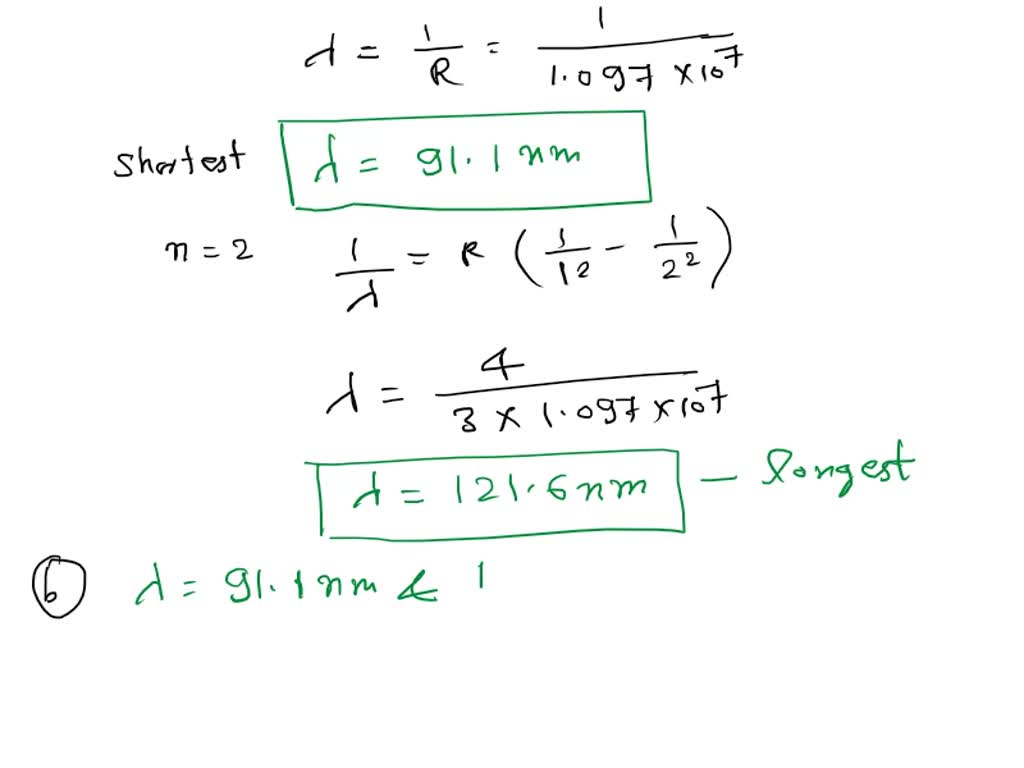 λ = 1/R = 1/(1.097 × 10^7)
Shortest λ = 91.1 nm
n = 2 1/λ = R (1/1^2 - 1/2^2)
λ = 4/(3 × 1.097 × 10^7)
λ = 121.6 nm — longest
(b) λ = 91.1 nm & 1